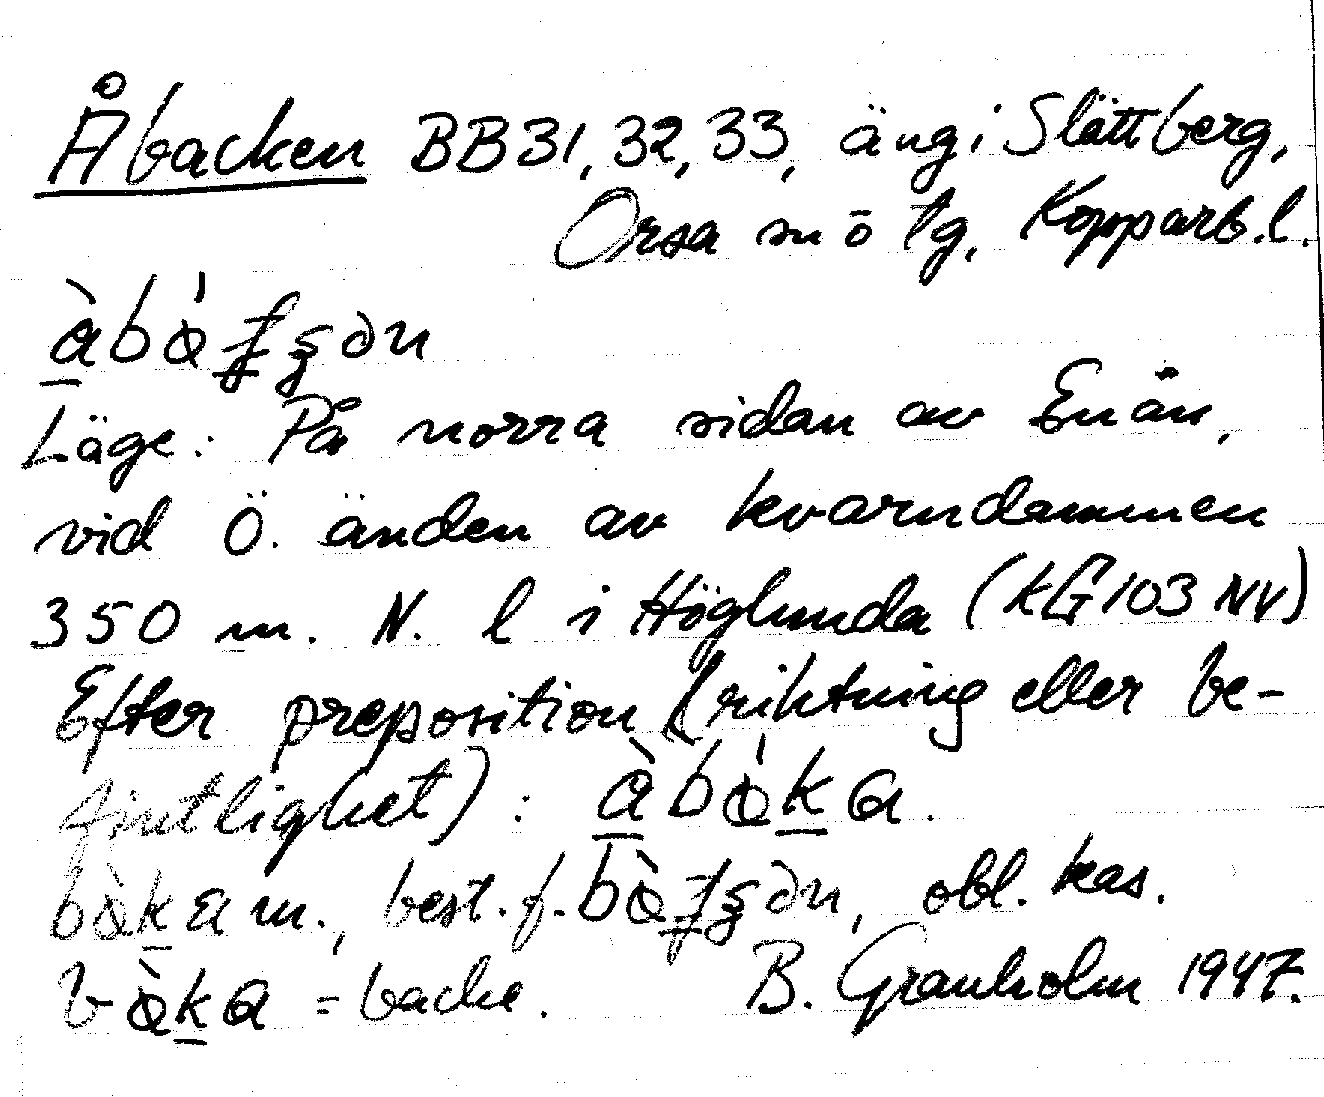 Åbacken BB31, 32, 33, äng i Slättberg,
Orsa sn o tg, Kopparb.l.
Läge: På norra sidan av Enån,
vid Ö. änden av kvarndammen
350 m. N. l i Höglunda (KG103NV)
Efter preposition (riktning eller be-
fintlighet): àbòka.
bòka m., best. f. obl. kas.
bòka = backe. B. Granholm 1947.